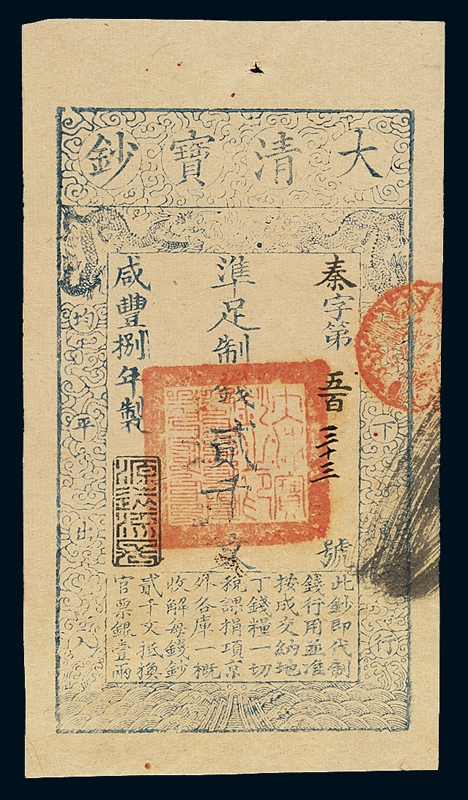 大清寶鈔
秦字第 五百三十三 號
準足制錢貳千文
咸豐捌年製
天下
行
均平出入
此鈔即代制
錢行用並准
按成交納地
丁錢糧一切
稅課捐項京
外各庫一概
收解每錢鈔
貳千文抵換
官票銀壹兩